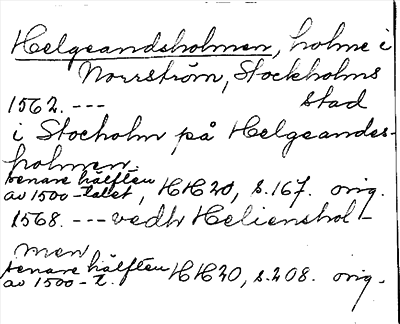 Helgeandsholmen, holme i
Norrström, Stockholms
stad
1562. ---
i Stocholm på Helgeandes-
holmen.
senare hälften
av 1500-talet, HH20, s.167. orig.
1568. --- vedh Helienshol-
men
senare hälften
av 1500-t. HH20, s.208. orig.